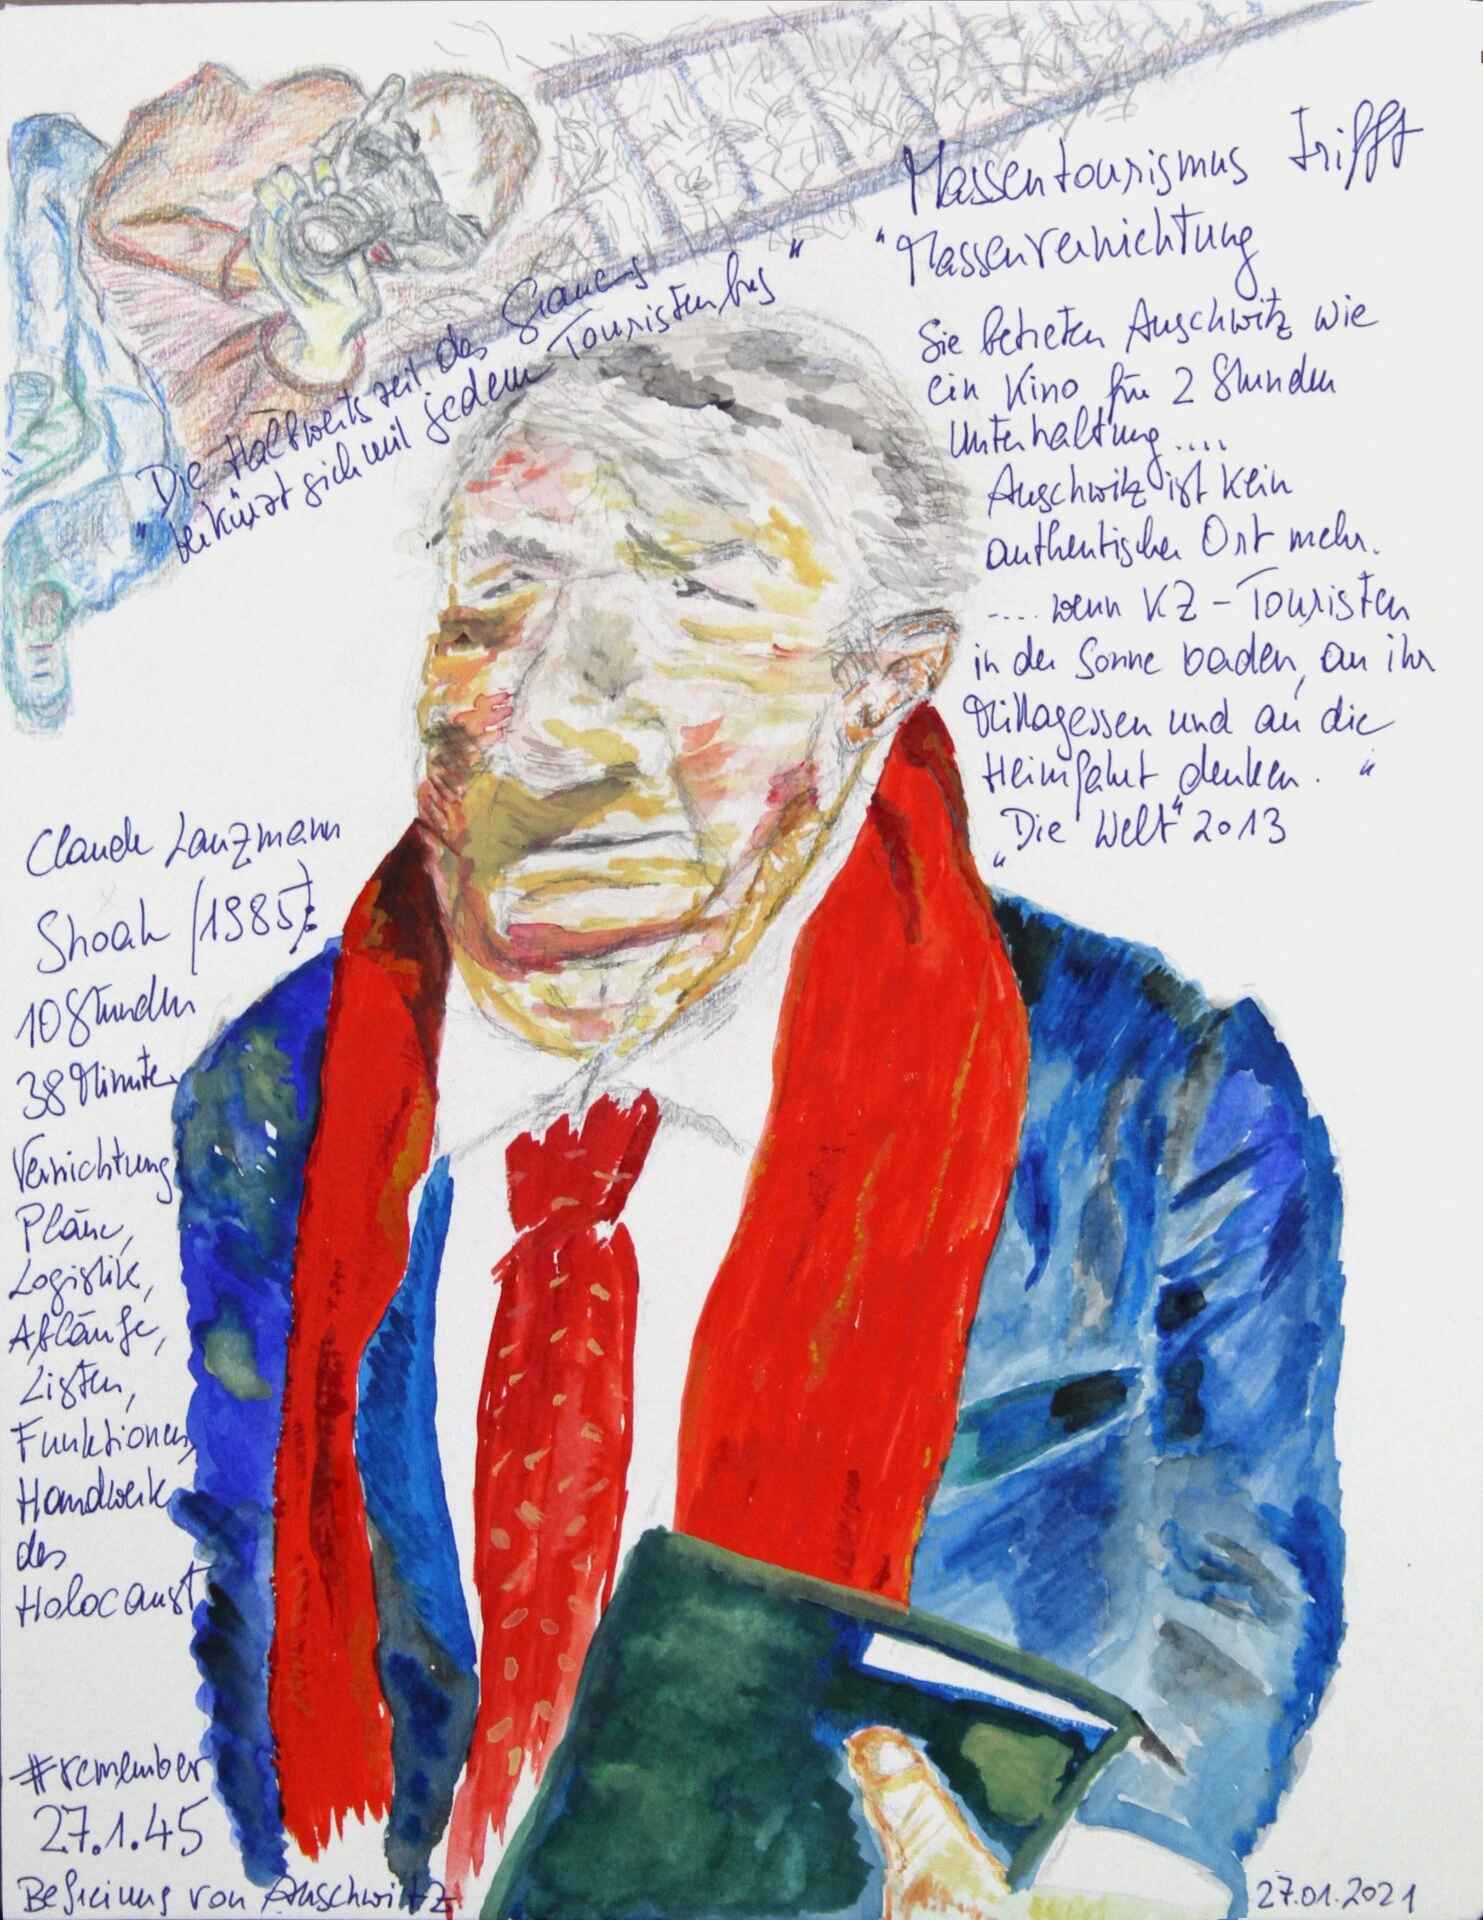 Massentourismus trifft
"Massenvernichtung
Sie betreten Auschwitz wie
ein Kino für 2 Stunden
Unterhaltung....
Auschwitz ist kein
authentischer Ort mehr.
.... wenn KZ-Touristen
in der Sonne baden, an ihr
Mittagessen und an die
Heimfahrt denken. "
"Die Welt" 2013
"Die Halbwertszeit des Grauens
verkürzt sich mit jedem Touristenbus"
Claude Lanzmann
Shoah (1985):
10 Stunden
38 Minuten
Vernichtung
Pläne,
Logistik,
Abläufe,
Listen,
Funktionen,
Handwerk
des
Holocaust
#remember
27.1.45
Befreiung von Auschwitz
27.01.2021